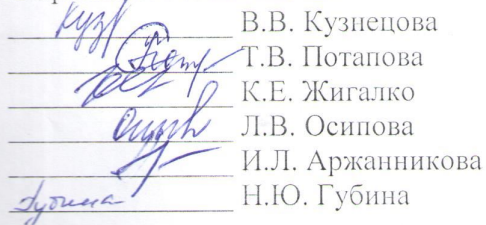 Куз В.В. Кузнецова
Т.В. Потапова
К.Е. Жигалко
Л.В. Осипова
И.Л. Аржанникова
Губина Н.Ю. Губина